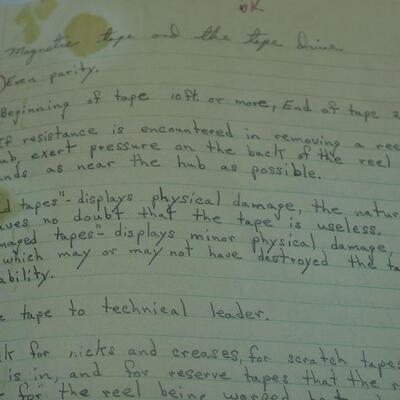 OK
Magnetic tape and the tape Drive
Even parity.
Beginning of tape 10ft. or more, End of tape 2
If resistance is encountered in removing a ree
ub, exert pressure on the back of the reel
nds as near the hub as possible.
d tapes"- displays physical damage, the natur
aves no doubt that the tape is useless.
maged tapes"- displays minor physical damage,
which may or may not have destroyed the ta
ability.
e tape to technical leader.
k for nicks and creases, for scratch tapes
is in, and for reserve tapes that the r
for the reel being warped